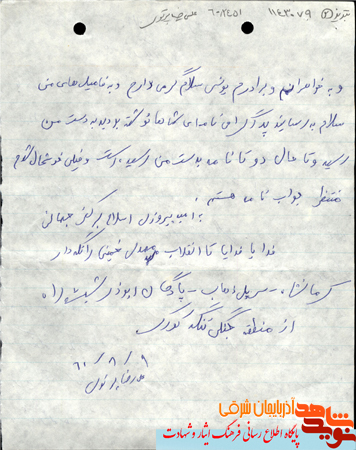 تبریز ② ۱۱۴۳۰۷۹ ۶۰۱۲۴۵۱
و به خواهرانم و برادرم یونس سلام گرمی دارم و به فامیل‌های من
سلام برسانید پدر گرامی نامه‌ای شما ها نوشته بودید به دست من
رسید و تا حال دو تا نامه بدست من رسید است و خیلی خوشحال شدم
منتظر جواب نامه هستم.
به امید پیروزی اسلام بر کفر جهانی
خدایا خدایا تا انقلاب مهدی خمینی را نگه‌دار
کرمانشاه - سرپل ذهاب - پادگان ابوذر
از منطقه جنگی تنگه
۶۰/۸/۹
نوید شاهد
آذربایجان شرقی
پایگاه اطلاع رسانی فرهنگ ایثار و شهادت